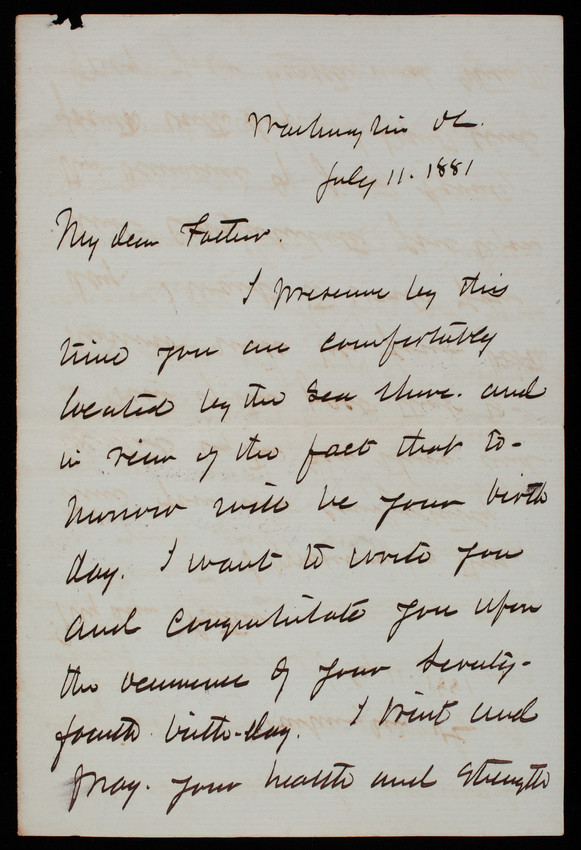 Washington DC.
July 11. 1881
My dear Father.
I presume by this
time you are comfortably
located by the Sea Shore. and
in view of the fact that to-
morrow will be your birth
day. I want to write you
and congratulate you upon
the occurrence of your Seventy-
fourth birth-day. I trust and
pray. your health and Strength